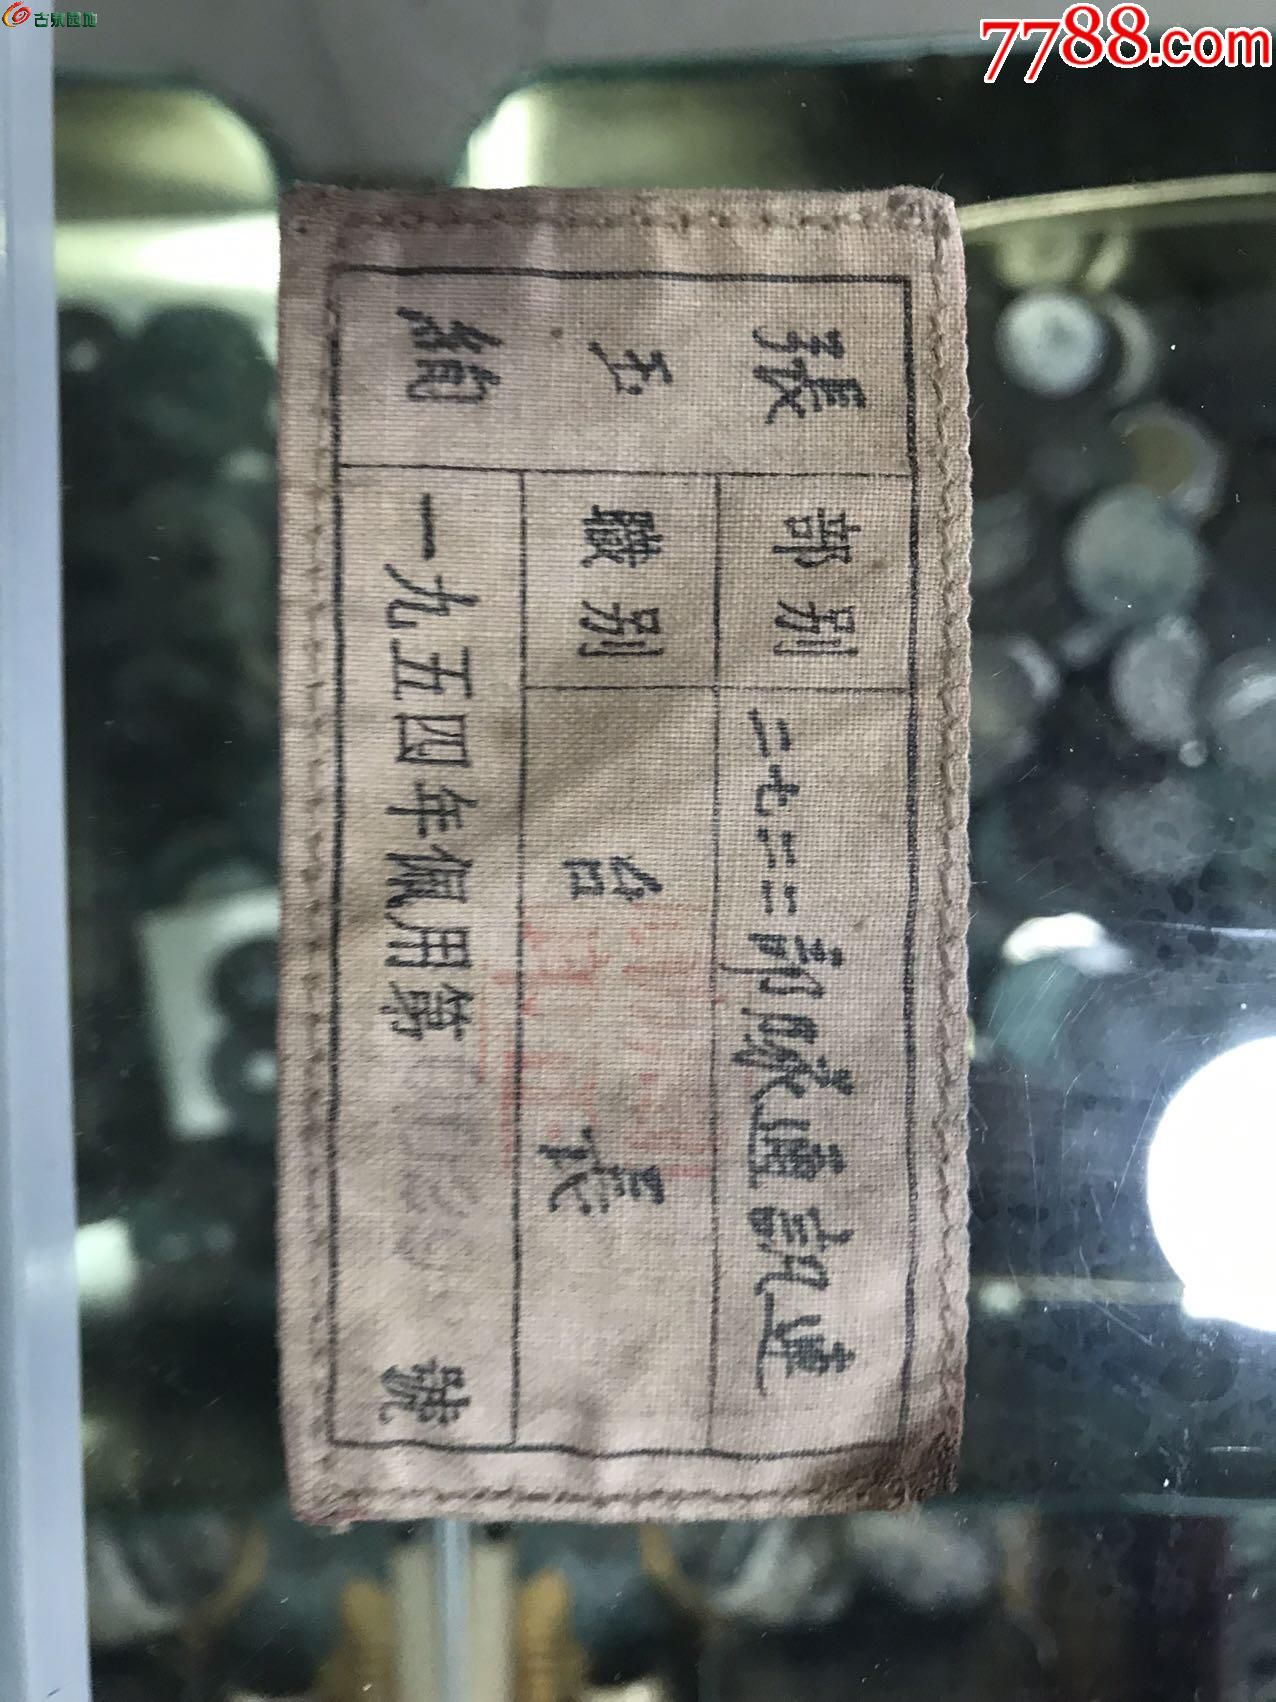 古泉园地
7788.com
張玉絢
部别
二七二二部隊通訊連
職别
台長
一九五四年佩用第
號